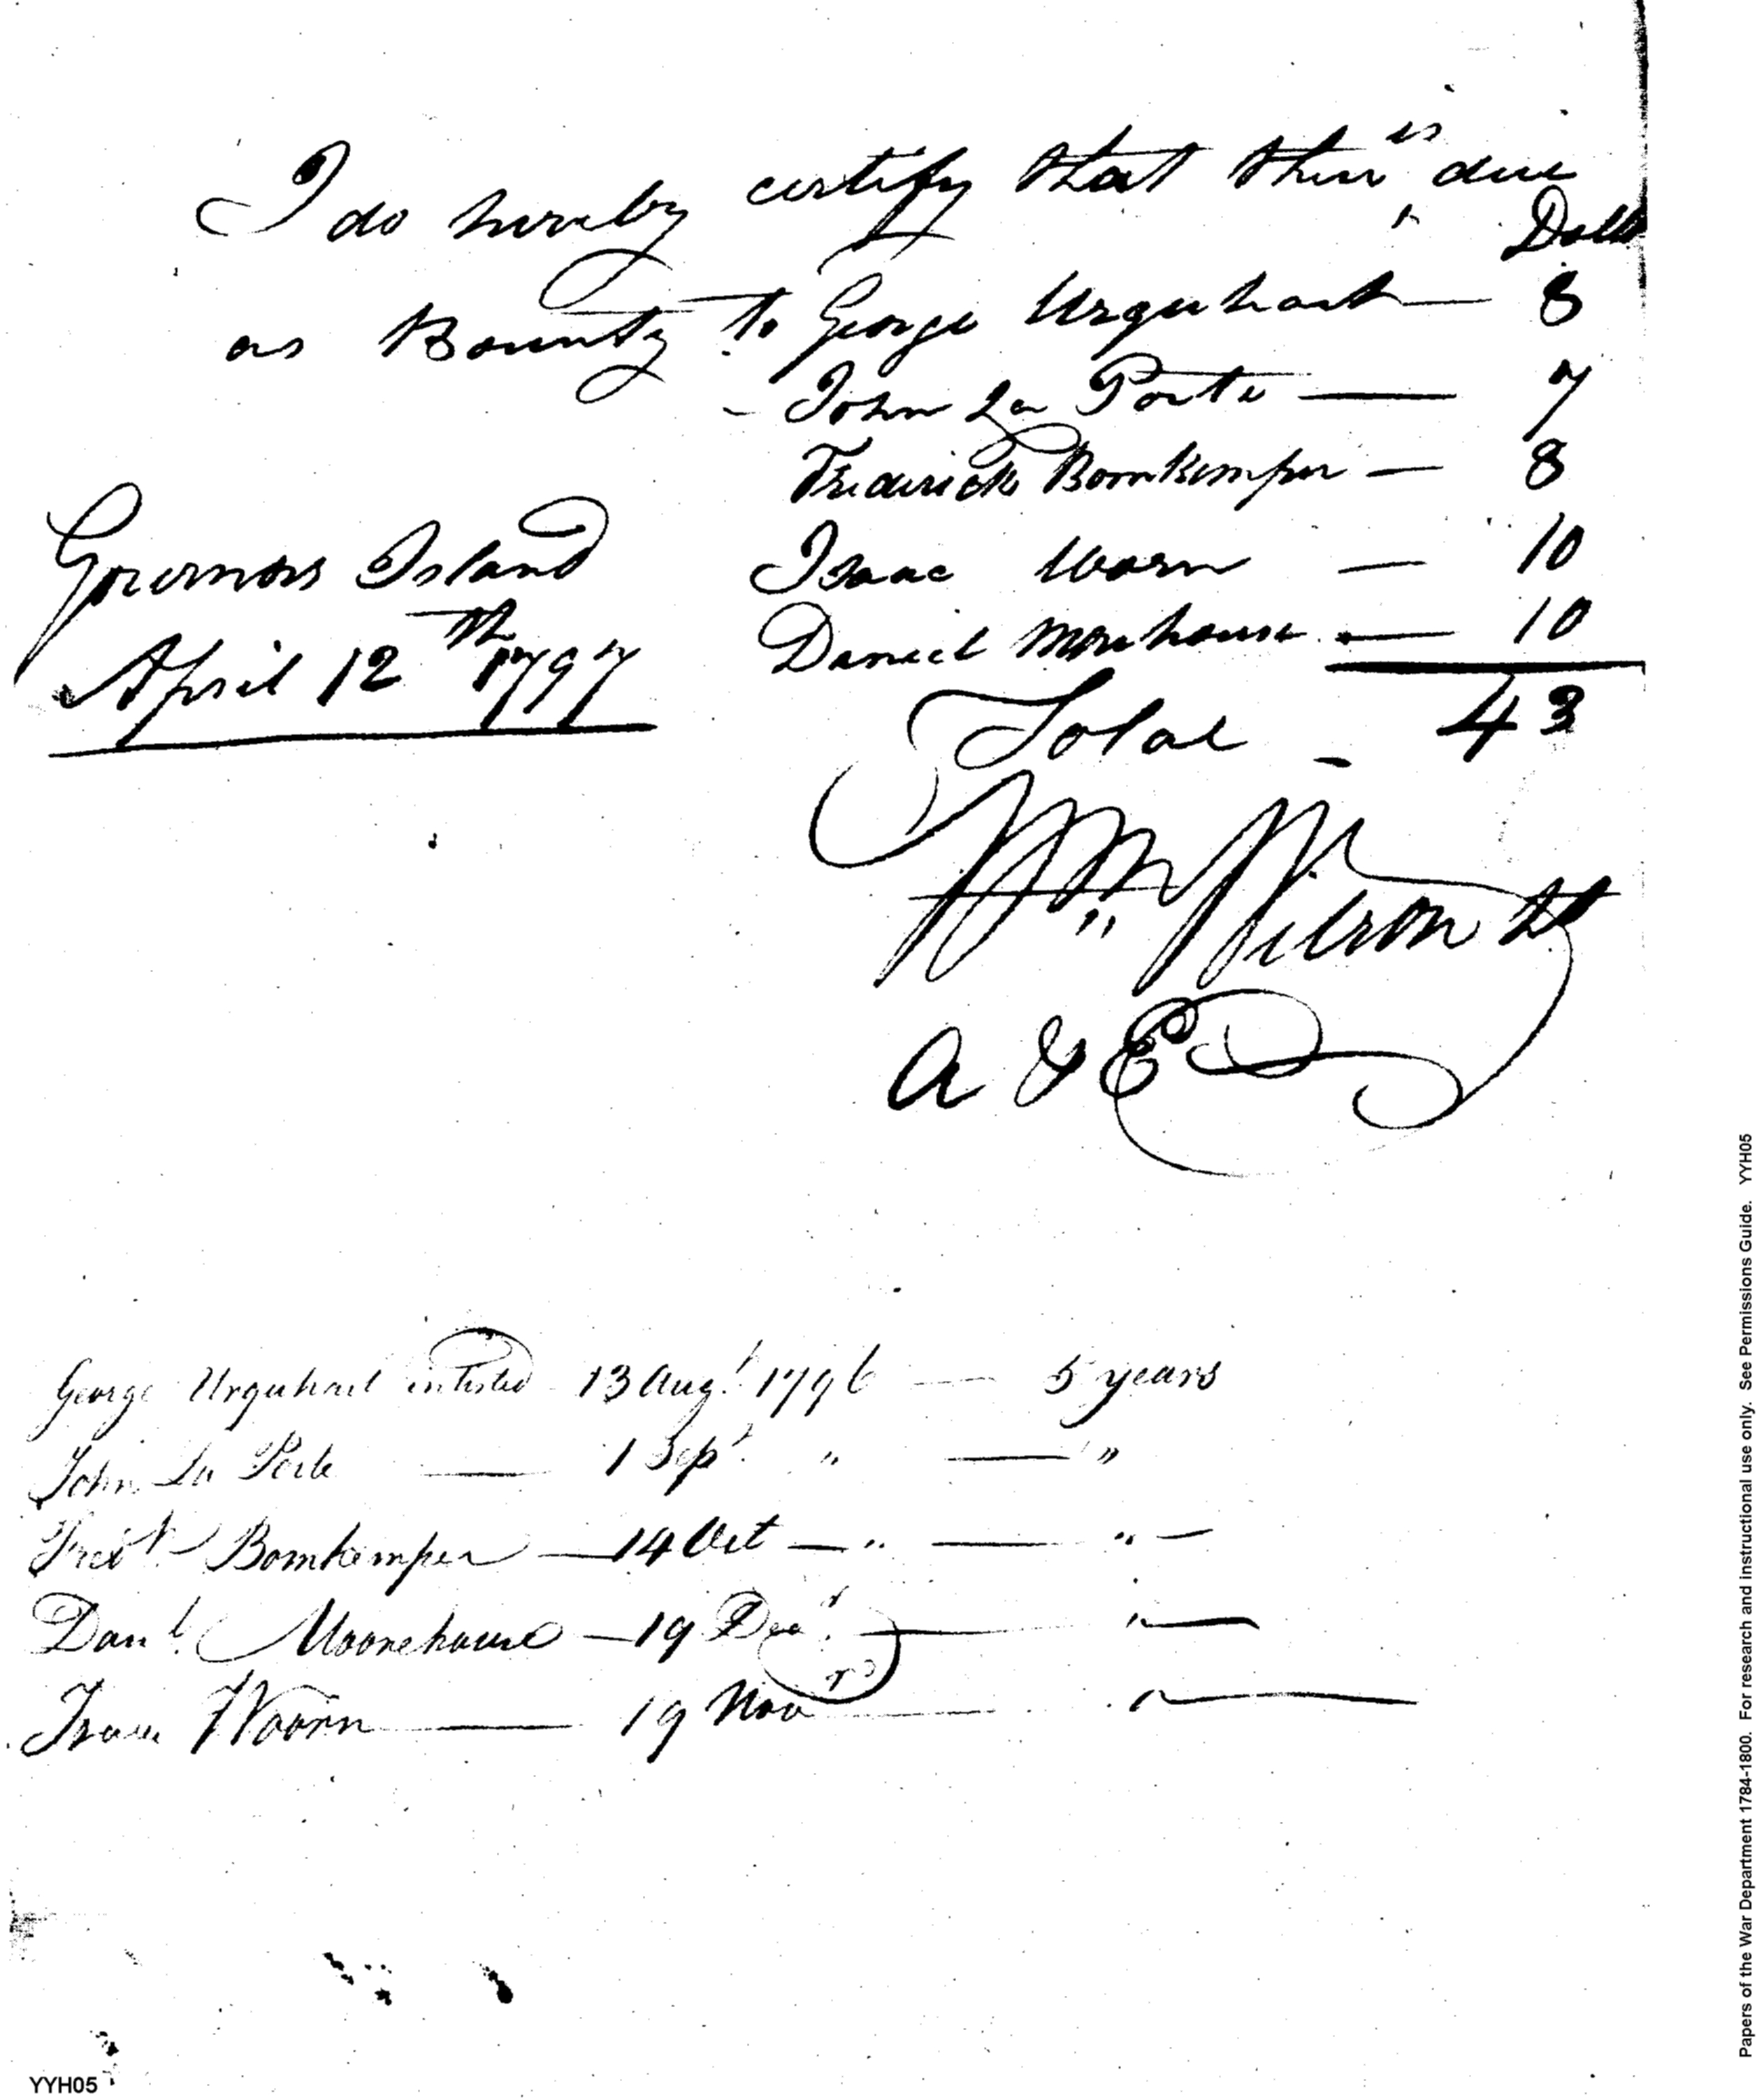 I do hereby certify that their is due
Dolls
as Bounty to George Urquhart — 8
John La Porte — 7
Frederick Bomkemper — 8
Isaac Woorn — 10
Daniel Morehouse — 10
Total - 43
Governors Island
April 12th 1797
Wm Wilson Lt
A & E
George Urquhart intisted 13 Augt 1796 — 5 years
John La Porte — 1 Sept " — "
Fredk Bomkemper — 14 Oct — " — " —
Danl Moorehouse — 19 Decr — " —
Isaac Woorn — 19 Novr — " —
YYH05
Papers of the War Department 1784-1800. For research and instructional use only. See Permissions Guide. YYH05